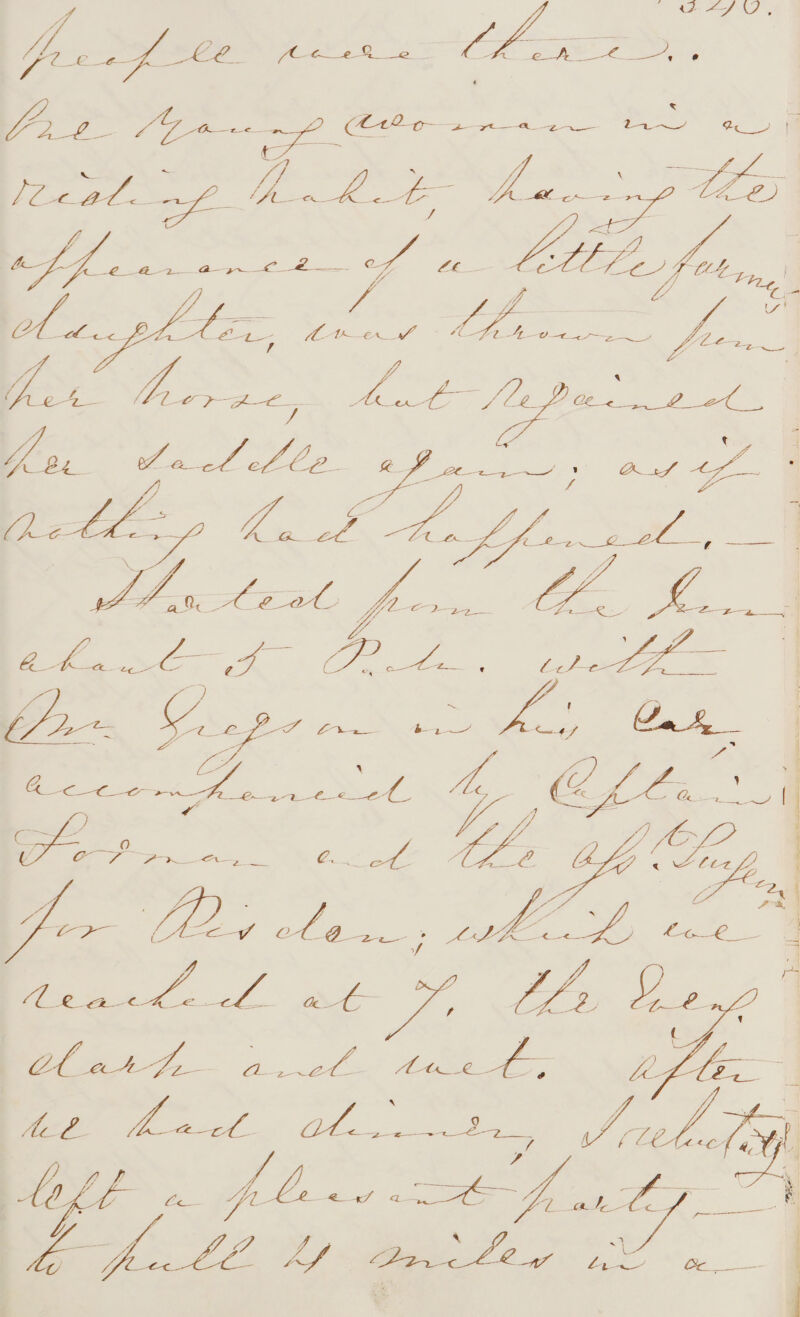 326.
people were there.
One Young woman in a
riding habit, having the
appearance of a little farmers
daughter, was thrown from
her horse, but Regained
her saddle again; as if
nothing had happened. —
Started from the Inn
about 5 P.M. with
Mr. Gregson in his Car
accompanied by Captain
Forman and the Asst. Surgeon
for Risdon; which we
reached at 7, the Eveng.
dark and wet. After
we had dinner, I reluctantly
left a pleasant party —
to pull 4 miles in a